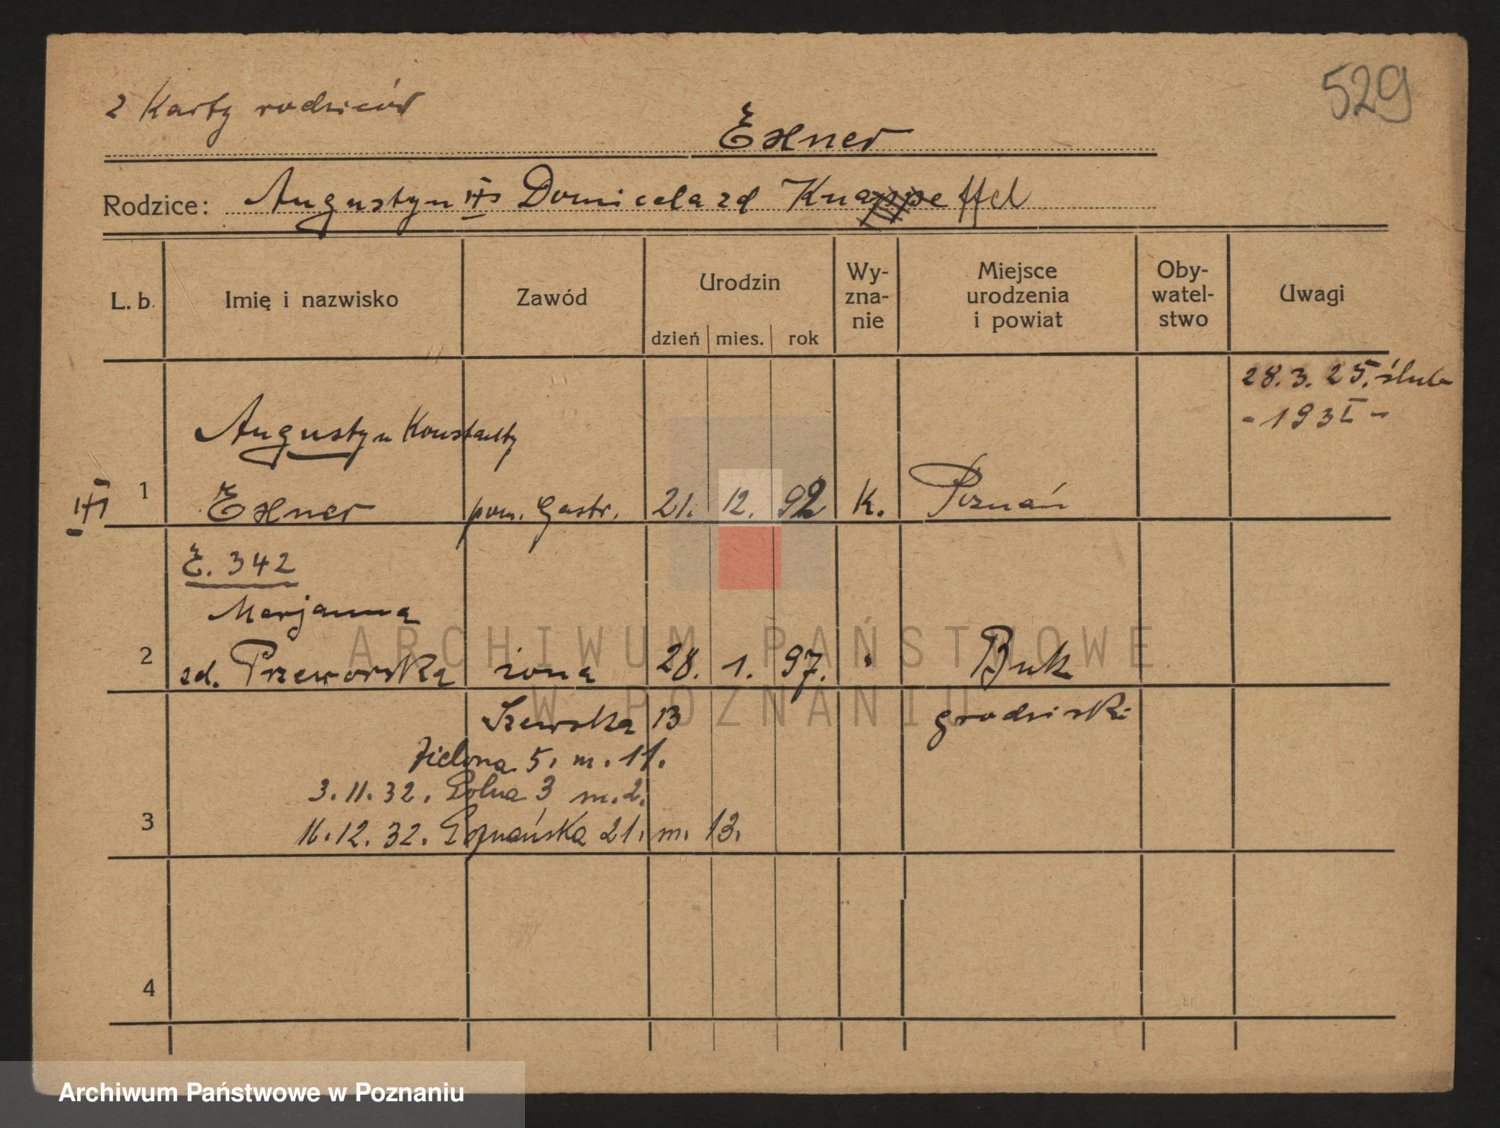 529
z Karty rodziców
Exner
Rodzice: Augustyn Domicela zd Knappe ffel
L. b. Imię i nazwisko Zawód Urodzin Wy-zna-nie Miejsce urodzenia i powiat Oby-watel-stwo Uwagi
dzień mies. rok
28. 3. 25. ślub
- 193 I -
Augustyn Konstanty
1 Exner pom. Gastr. 21. 12. 92 K. Poznań
E. 342
Marjanna
2 zd. Przeworska żona 28. 1. 97. " Buk
Szewska 13 grodziski
Zielona 5. m. 11.
3. 11. 32. Polna 3 m. 2.
3 16. 12. 32. Poznańska 21. m. 13.
4
ARCHIWUM PAŃSTWOWE
W POZNANIU
Archiwum Państwowe w Poznaniu